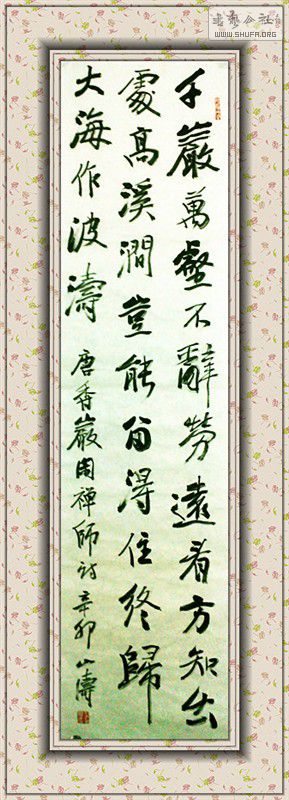 書藝公社
WWW.SHUFA.ORG
千巖萬壑不辭勞遠看方知出
處高溪澗豈能留得住終歸
大海作波濤 唐香巖禪師詩 辛卯 山濤